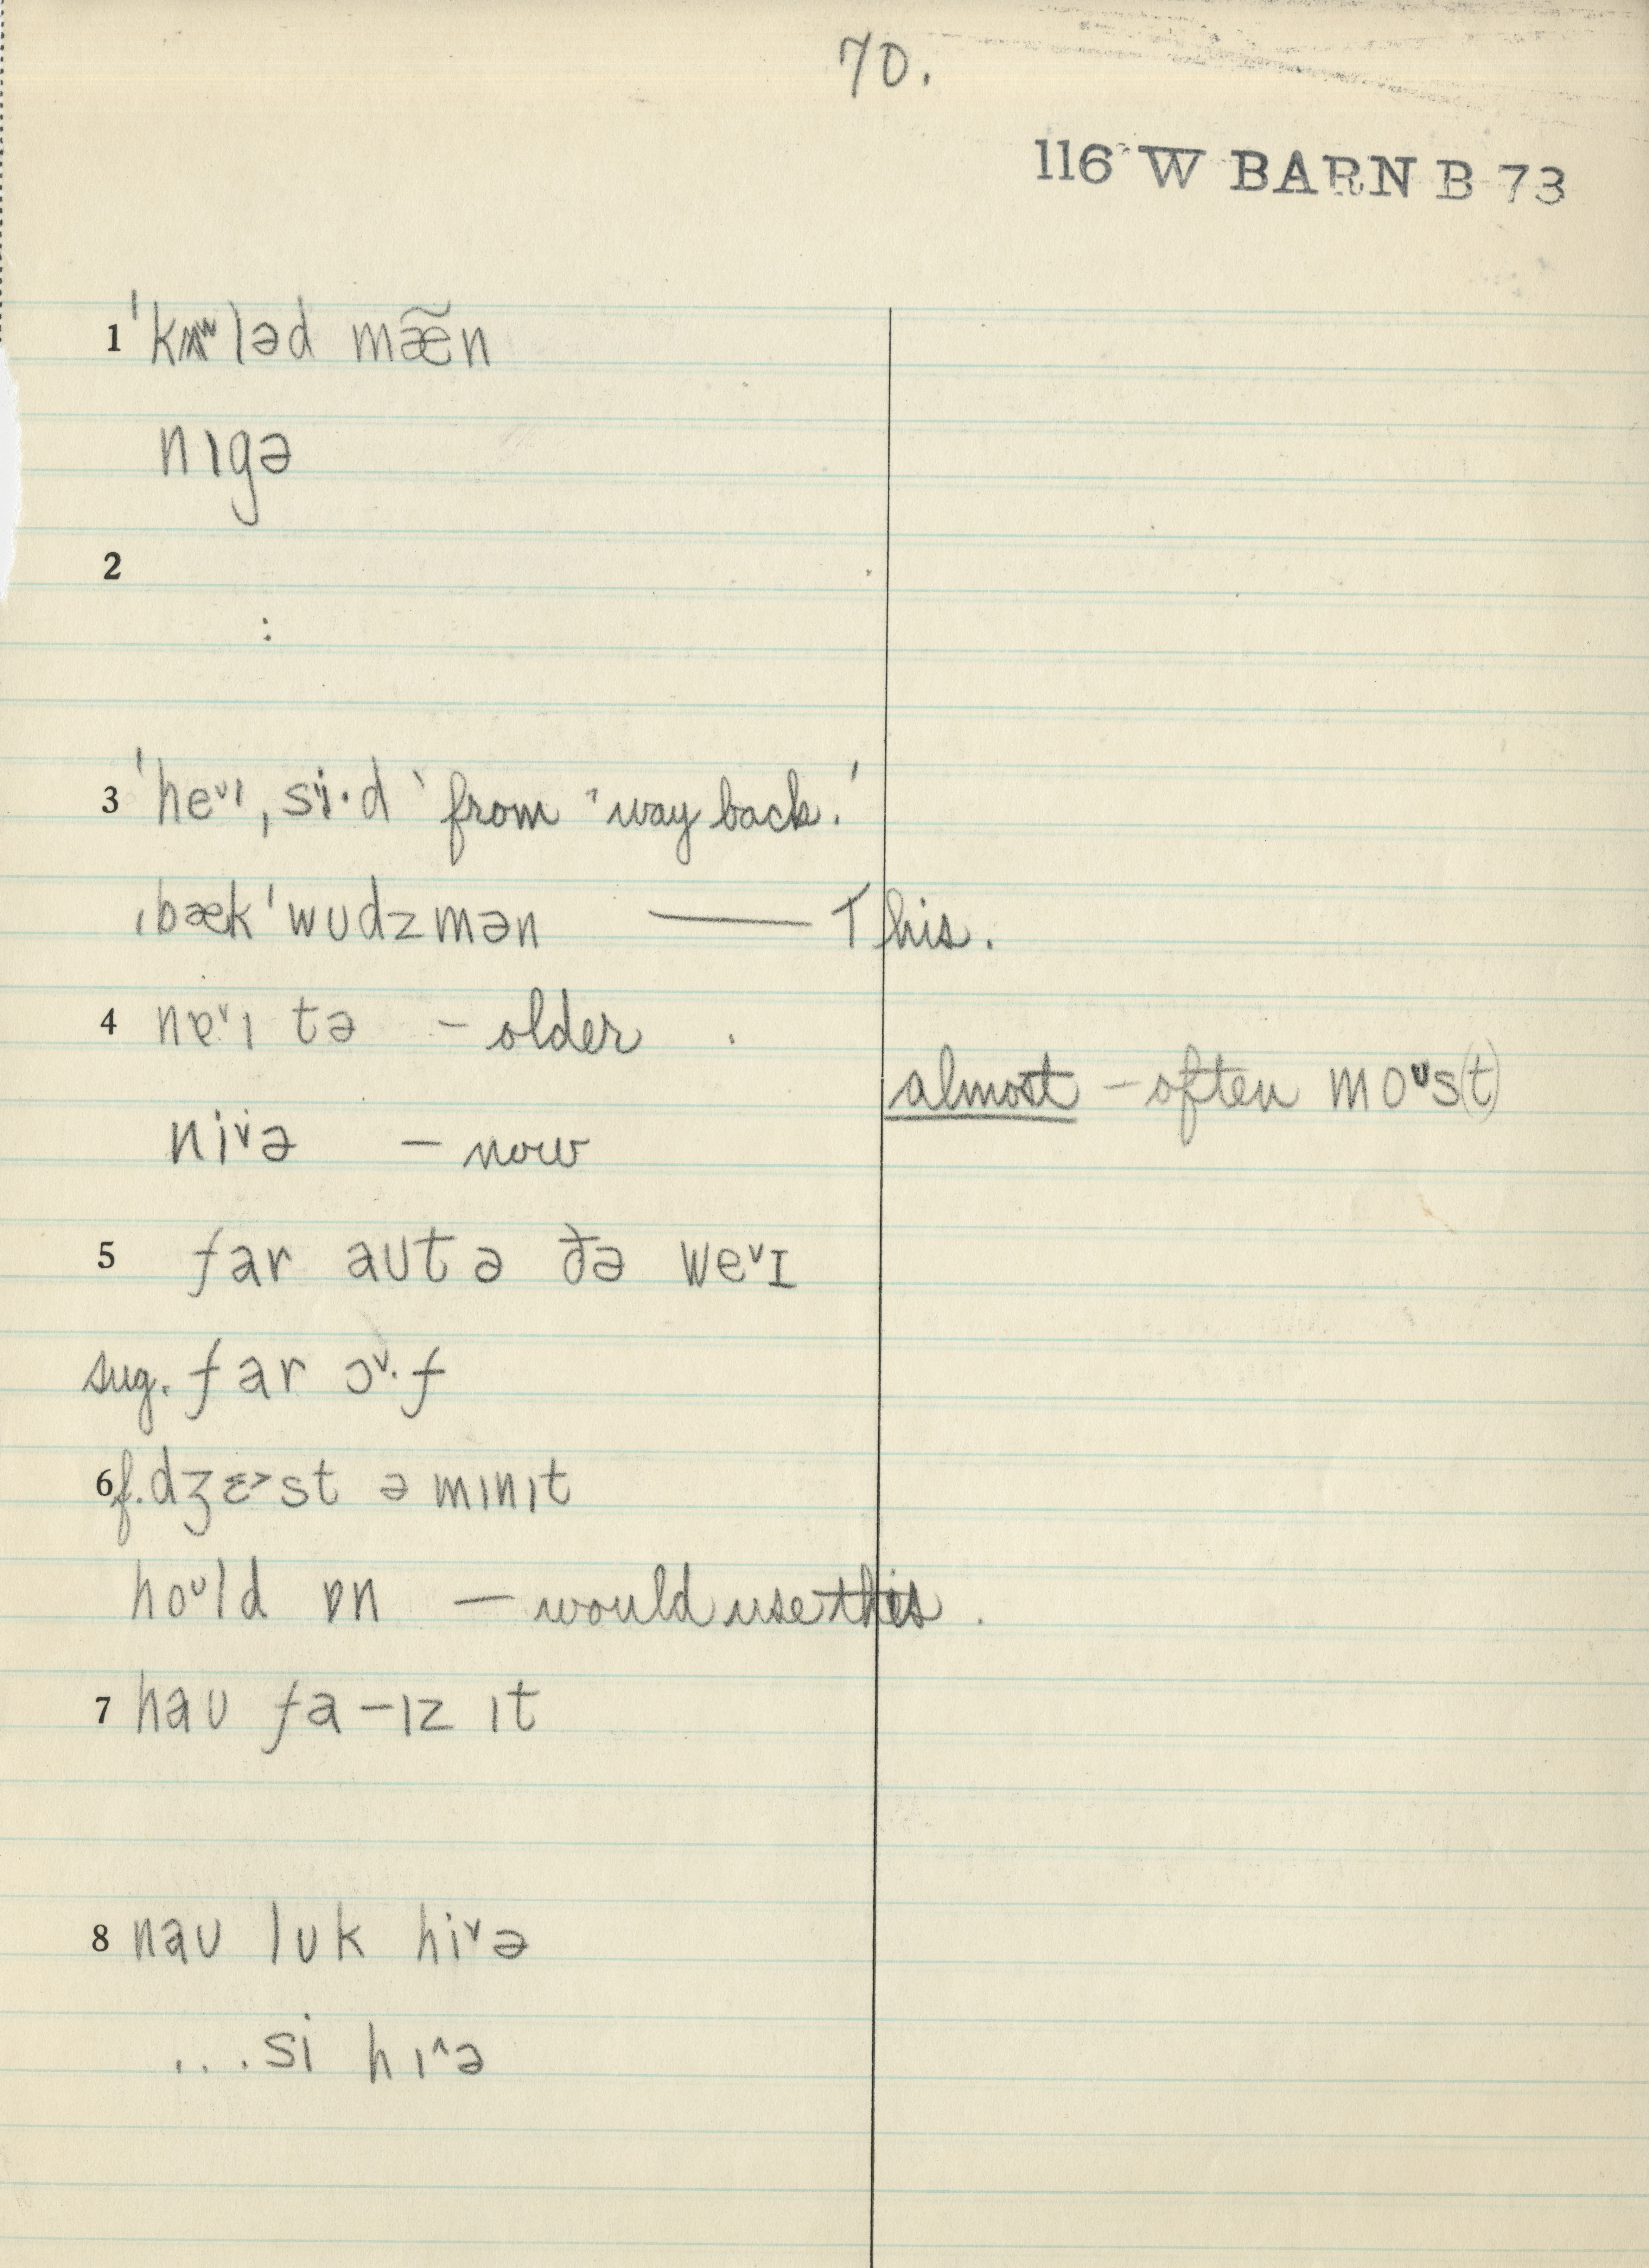 70.
116 W BARN B 73
1 ˈkʌləd mæ̃n
nɪgə
2
:
3 ˈheᵛɪˌsi·d ‘from ’way back.’
ˌbækˈwʊdzmən — This.
4 neᵛɪtə – older
almost – often moᵘs(t)
niᵛə – now
5 far aʊt ə ðə weᵛɪ
sug. far ɔᵛ·f
6 f. dʒɛ˃st ə mɪnɪt
hoᶷld ɒn — would use this.
7 haʊ fa–ɪz ɪt
8 naʊ lʊk hiᵛə
...si hɪ^ə